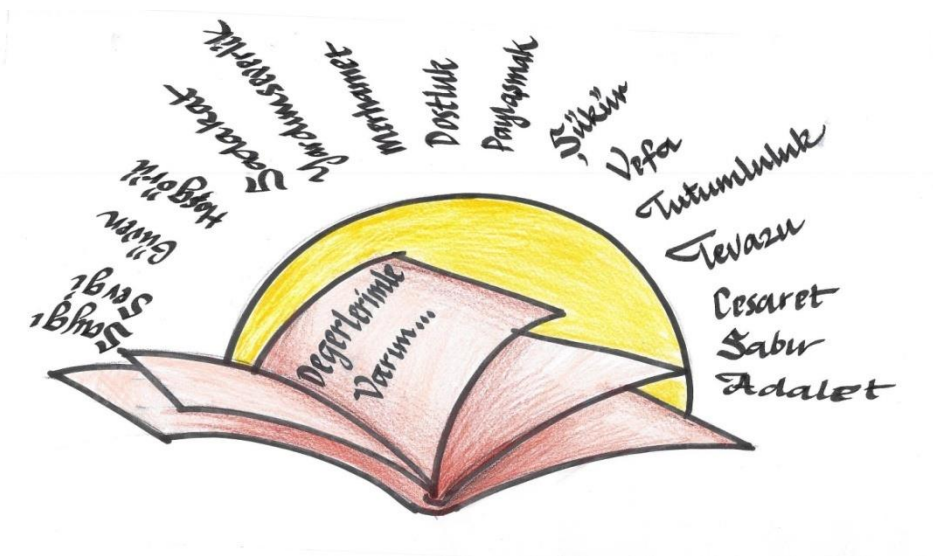 Saygı
Sevgi
Güven
Hoşgörü
Sadakat
Yardımseverlik
Merhamet
Dostluk
Paylaşmak
Şükür
Vefa
Tutumluluk
Tevazu
Cesaret
Sabır
Adalet
Değerlerimle
Varım...